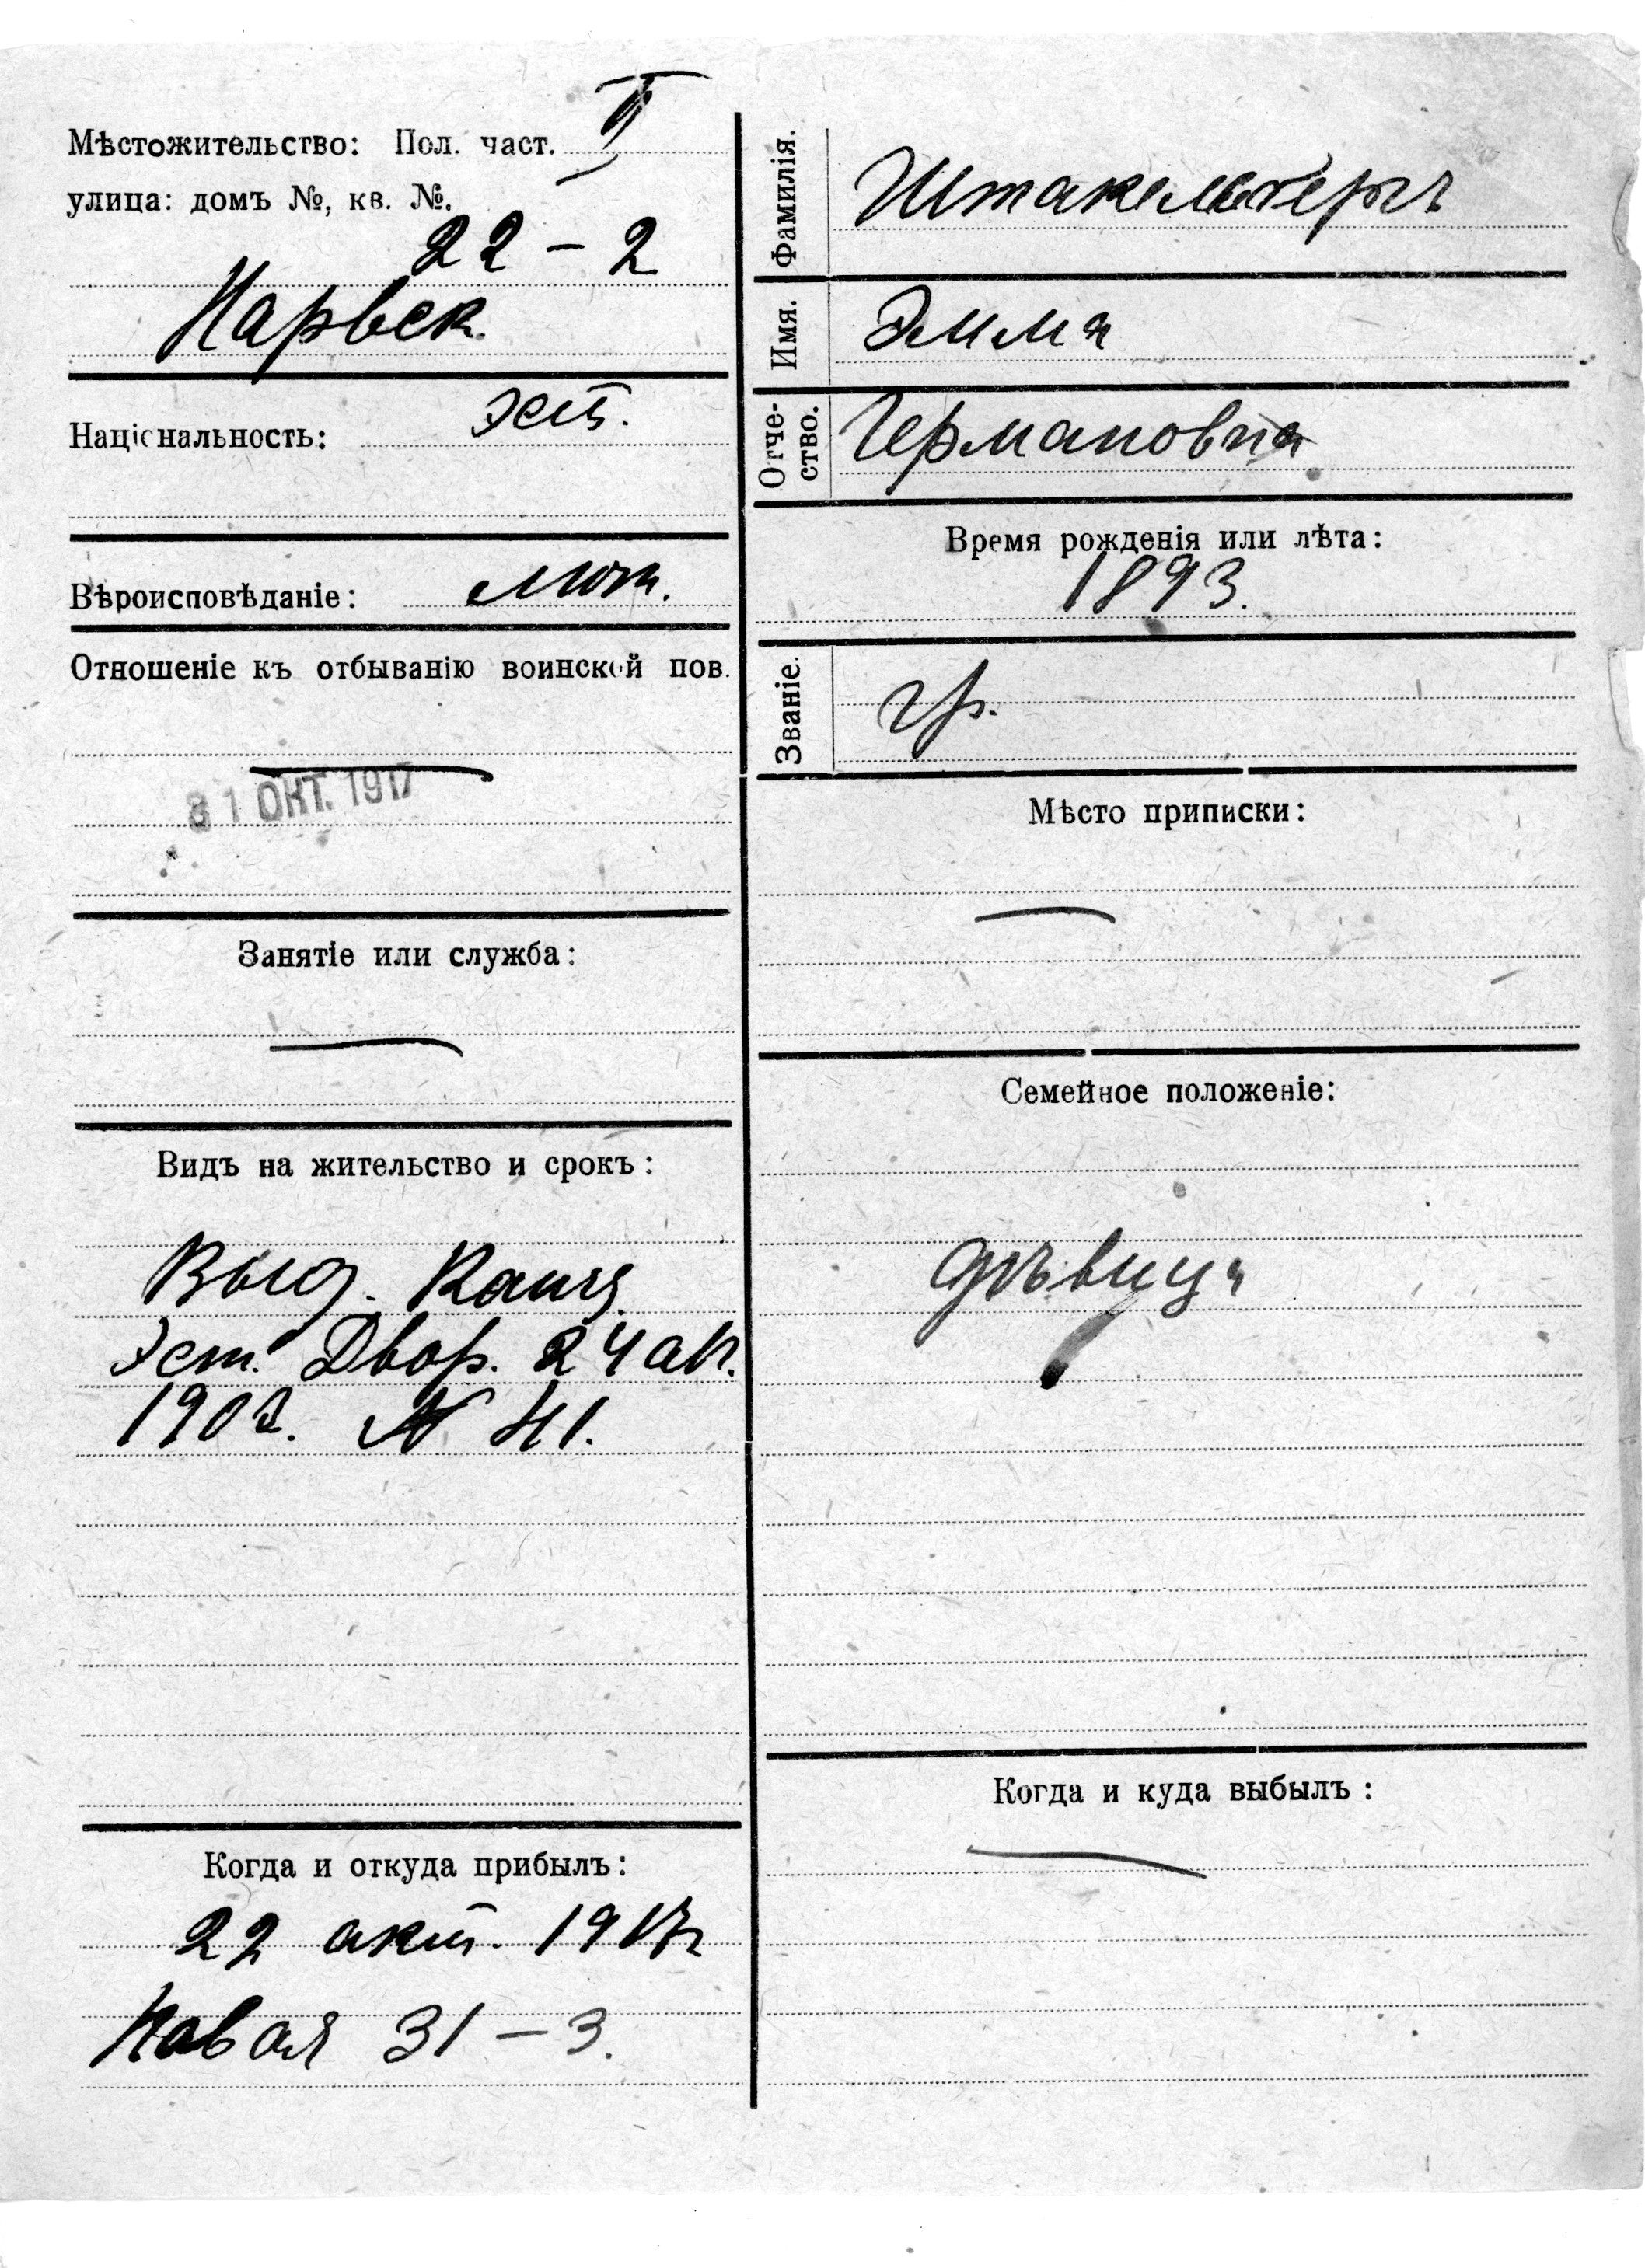 Мѣстожительство: Пол. част. II
улица: домъ №, кв. №.
22 – 2
Нарвск.
Національность: эст.
Вѣроисповѣданіе: лют.
Отношеніе къ отбыванію воинской пов.
31 ОКТ. 1917
Занятіе или служба:
Видъ на жительство и срокъ:
Выд. Канц.
Эст. Двор. 24 ап.
190 г. № 41.
Когда и откуда прибылъ:
22 окт. 1917 г
Новая 31 – 3.
Фамилія. Штакельбергъ
Имя. Эмма
Отче-
ство. Германовна
Время рожденія или лѣта:
1893.
Званіе. гр.
Мѣсто приписки:
Семейное положеніе:
дѣвица
Когда и куда выбылъ: